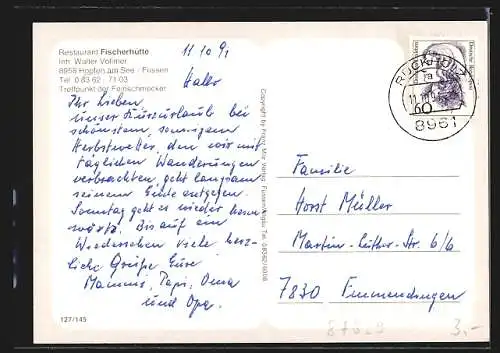 Restaurant Fischerhütte
Inh. Walter Vollmer
8958 Hopfen am See - Füssen
Tel. 0 83 62 - 71 03
Treffpunkt der Feinschmecker
11.10.91
Hallo
Ihr Lieben
unser Kurzurlaub bei
schönstem, sonnigem
Herbstwetter, den wir mit
täglichen Wanderungen
verbrachten, geht langsam
seinem Ende entgegen.
Sonntag geht es wieder heim
wärts. Bis auf ein
Wiedersehen viele herz-
liche Grüße Eure
Mammi, Papi, Oma
und Opa.
127/145
Copyright by Franz Milz Verlag, Füssen/Allgäu, Tel.
Deutsche Bundespost
60
8961
Familie
Horst Müller
Martin-Luther-Str. 6/6
7830 Emmendingen
3,-